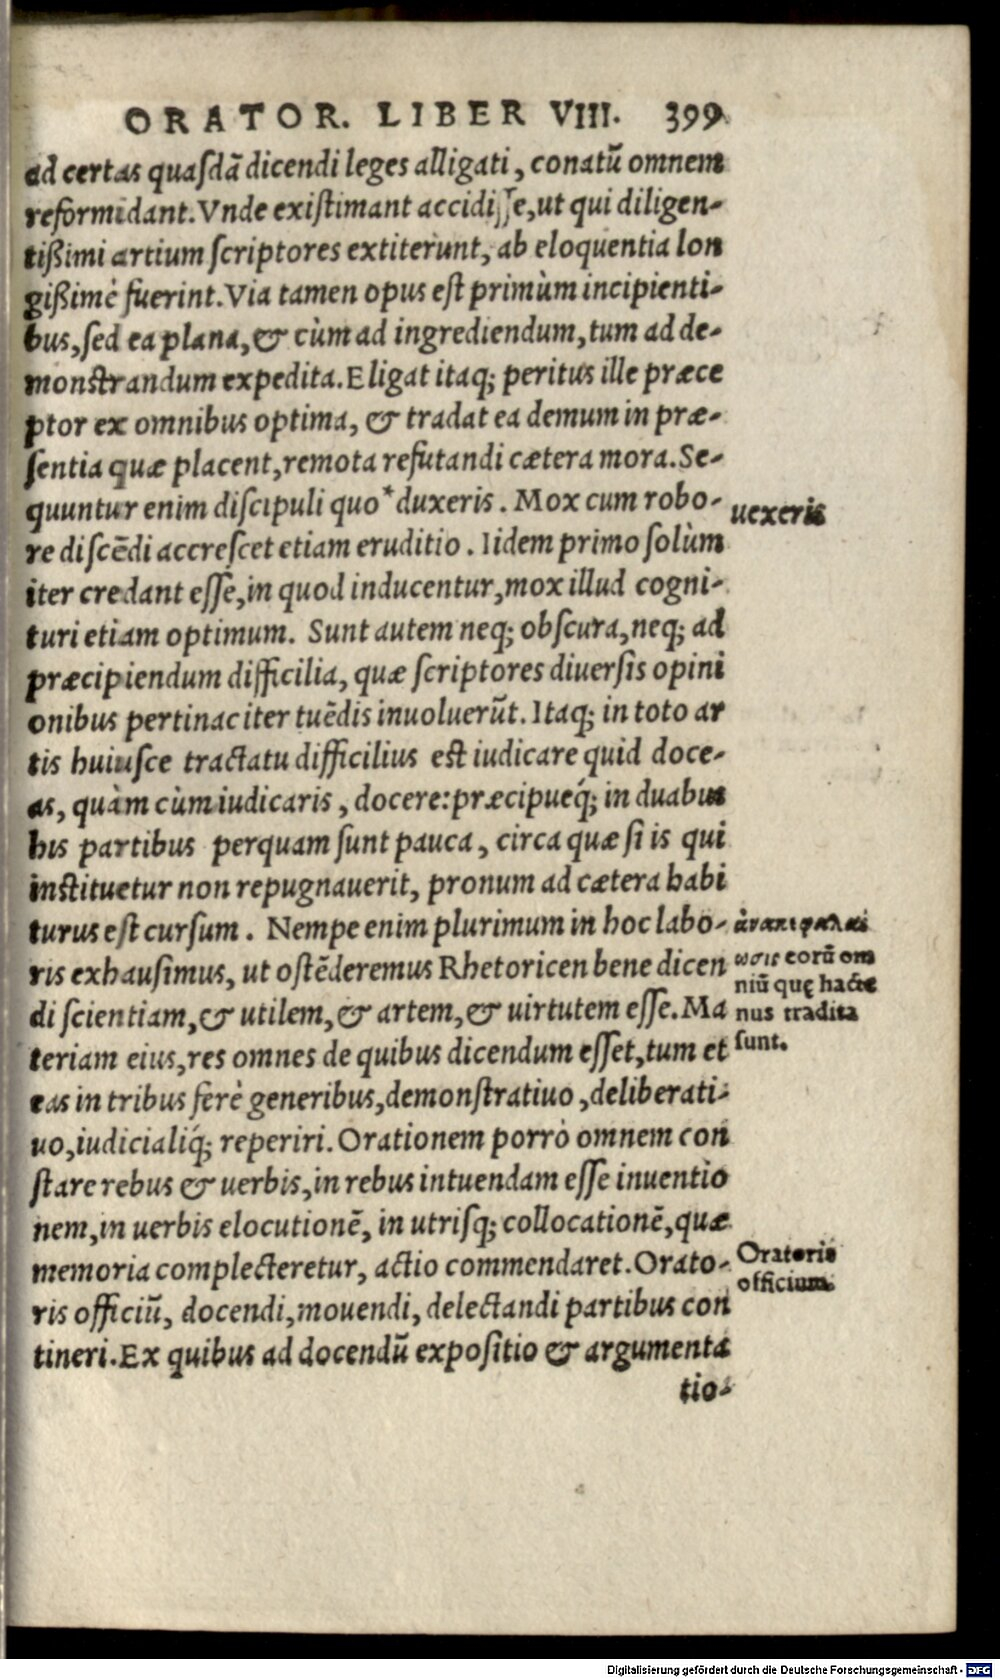 ORATOR. LIBER VIII. 399
ad certas quasdā dicendi leges alligati, conatū omnem
reformidant. Vnde existimant accidisse, ut qui diligen-
tißimi artium scriptores extiterunt, ab eloquentia lon
gißimè fuerint. Via tamen opus est primùm incipienti-
bus, sed ea plana, & cùm ad ingrediendum, tum ad de-
monstrandum expedita. Eligat itaq; peritus ille præce
ptor ex omnibus optima, & tradat ea demum in præ-
sentia quæ placent, remota refutandi cætera mora. Se-
quuntur enim discipuli quo* duxeris. Mox cum robo-
uexeris
re discēdi accrescet etiam eruditio. Iidem primo solùm
iter credant esse, in quod inducentur, mox illud cogni-
turi etiam optimum. Sunt autem neq; obscura, neq; ad
præcipiendum difficilia, quæ scriptores diuersis opini
onibus pertinaciter tuēdis inuoluerūt. Itaq; in toto ar
tis huiusce tractatu difficilius est iudicare quid doce-
as, quàm cùm iudicaris, docere: præcipueq́; in duabus
his partibus perquam sunt pauca, circa quæ si is qui
instituetur non repugnauerit, pronum ad cætera habi
turus est cursum. Nempe enim plurimum in hoc labo-
ris exhausimus, ut ostēderemus Rhetoricen bene dicen
di scientiam, & utilem, & artem, & uirtutem esse. Ma
teriam eius, res omnes de quibus dicendum esset, tum et
eas in tribus ferè generibus, demonstratiuo, deliberati-
uo, iudicialiq́; reperiri. Orationem porrò omnem con
stare rebus & uerbis, in rebus intuendam esse inuentio
nem, in uerbis elocutionē, in utrisq; collocationē, quæ
memoria complecteretur, actio commendaret. Orato-
ris officiū, docendi, mouendi, delectandi partibus con
tineri. Ex quibus ad docendū expositio & argumenta
tio-
ἀνακεφαλαί
ωσις eorū om
niū quę hacte
nus tradita
sunt.
Oratoris
officium.
Digitalisierung gefördert durch die Deutsche Forschungsgemeinschaft - DFG